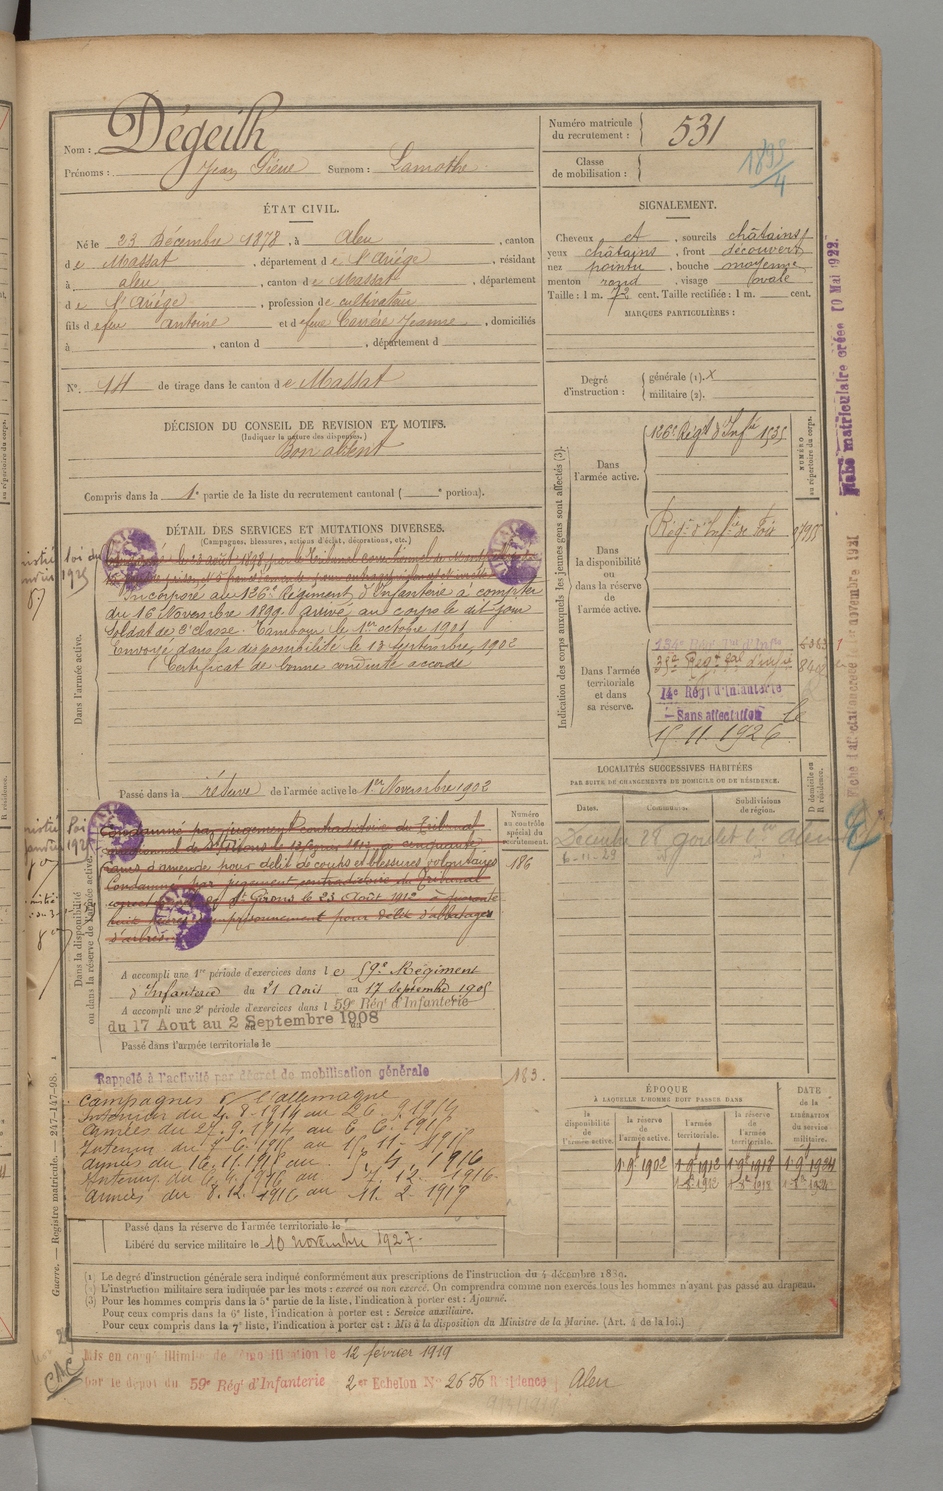 Nom : Dégeilh
Prénoms : Jean Pierre Surnom : Lamothe
Numéro matricule du recrutement : 531
Classe de mobilisation : 1898/4
ÉTAT CIVIL.
Né le 23 Décembre 1878, à Aleu, canton
de Massat, département de l'Ariége, résidant
à aleu, canton de Massat, département
de l'Ariége, profession de cultivateur
fils de feu antoine et de feue Carrère Jeanne, domiciliés
à , canton d , département d
N°. 14 de tirage dans le canton de Massat
SIGNALEMENT.
Cheveux et , sourcils châtains
yeux châtains , front découvert
nez pointu , bouche moyenne
menton rond , visage ovale
Taille : 1 m. 72 cent. Taille rectifiée : 1 m. cent.
MARQUES PARTICULIÈRES :
Degré d'instruction : générale (1). X
militaire (2).
DÉCISION DU CONSEIL DE REVISION ET MOTIFS.
(Indiquer la nature des dispenses.)
Bon absent
Compris dans la 1e partie de la liste du recrutement cantonal ( e portion).
DÉTAIL DES SERVICES ET MUTATIONS DIVERSES.
(Campagnes, blessures, actions d'éclat, décorations, etc.)
Dans l'armée active.
Incorporé au 126e Régiment d'Infanterie à compter
du 16 Novembre 1899. Arrivé au corps le dit jour
Soldat de 2e classe. Tambour le 1er octobre 1901
Envoyé dans la disponibilité le 13 Septembre 1902
Certificat de bonne conduite accordé
Passé dans la réserve de l'armée active le 1er Novembre 1902
Numéro au contrôle spécial du recrutement.
186
Dans la disponibilité ou dans la réserve de l'armée active.
Condamné par jugement contradictoire du Tribunal
correctionnel de St Girons le 13 février 1912 à cinquante
francs d'amende pour délit de coups et blessures volontaires
Condamné par jugement contradictoire du Tribunal
correctionnel de St Girons le 23 Août 1912 à quarante
huit heures d'emprisonnement pour délit d'abattages
d'arbres
A accompli une 1re période d'exercices dans le 59e Régiment
d'Infanterie du 21 Août au 17 Septembre 1905
A accompli une 2e période d'exercices dans l 59e Rég' d'Infanterie
du 17 Aout au 2 Septembre 1908
Passé dans l'armée territoriale le
Rappelé à l'activité par décret de mobilisation générale
183.
Campagnes c/ l'allemagne
Intérieur du 4. 8 - 1914 au 26. 9. 1914
Armées du 27. 9. 1914 au 6. 6. 1915
Intérieur du 7. 6. 1915 au 15. 11. 1915
Armées du 16. 11. 1915 au 5. 4. 1916
Intérieur du 6. 4. 1916 au 7. 12. 1916
Armées du 8. 12. 1916 au 11. 2. 1919
Passé dans la réserve de l'armée territoriale le
Libéré du service militaire le 10 novembre 1927.
Indication des corps auxquels les jeunes gens sont affectés (3).
NUMÉRO au répertoire du corps.
Dans l'armée active.
126e Régt d'Infrie 1535
Dans la disponibilité ou dans la réserve de l'armée active.
Régt d'Infrie de Foix
Dans l'armée territoriale et dans sa réserve.
14e Régt d'Infanterie
Sans affectation le
15. 11. 1926
LOCALITÉS SUCCESSIVES HABITÉES
PAR SUITE DE CHANGEMENTS DE DOMICILE OU DE RÉSIDENCE.
Dates. Communes. Subdivisions de région. D domicile ou R résidence.
ÉPOQUE
À LAQUELLE L'HOMME DOIT PASSER DANS
la disponibilité de l'armée active. la réserve de l'armée active. l'armée territoriale. la réserve de l'armée territoriale.
DATE de la LIBÉRATION du service militaire.
Guerre. — Registre matricule. — 247-147-98.
(1) Le degré d'instruction générale sera indiqué conformément aux prescriptions de l'instruction du 4 décembre 1889.
(2) L'instruction militaire sera indiquée par les mots : exercé ou non exercé. On comprendra comme non exercés tous les hommes n'ayant pas passé au drapeau.
(3) Pour les hommes compris dans la 5e partie de la liste, l'indication à porter est : Ajourné.
Pour ceux compris dans la 6e liste, l'indication à porter est : Service auxiliaire.
Pour ceux compris dans la 7e liste, l'indication à porter est : Mis à la disposition du Ministre de la Marine. (Art. 4 de la loi.)
Mis en congé illimité de démobilisation le 12 février 1919
par le dépôt du 59e Rég' d'Infanterie 2er Echelon N° 2656 Résidence Aleu